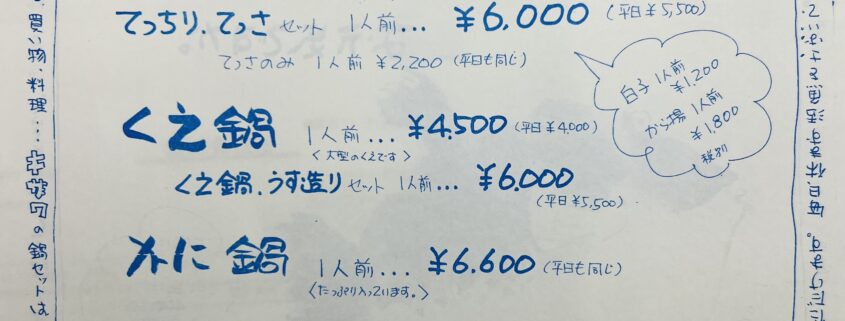 てっちり、てっさ セット 1人前… ¥6,000 (平日¥5,500)
てっさのみ 1人前 ¥2,200 (平日も同じ)
白子 1人前
¥1,200
から揚 1人前
¥1,800
税別
くえ鍋 1人前… ¥4,500 (平日¥4,000)
〈大型のくえです〉
くえ鍋、うす造り セット 1人前… ¥6,000
(平日¥5,500)
かに鍋 1人前… ¥6,600 (平日も同じ)
〈たっぷり入っています。〉
買い物、料理…キサワの鍋セットは
だけます。毎日、休まず活魚をさばい